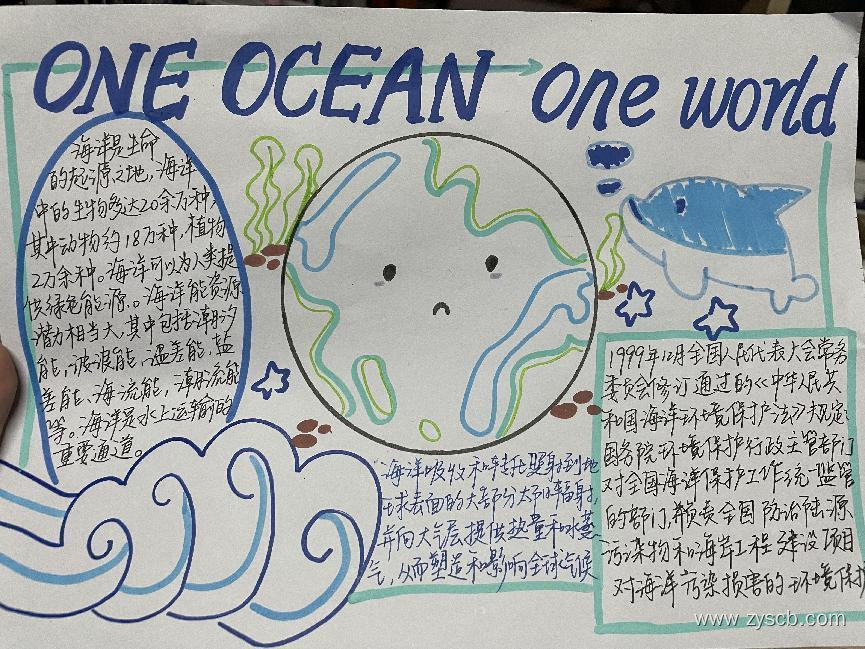 ONE OCEAN one world
海洋是生命
的起源之地,海洋
中的生物多达20余万种,
其中动物约18万种,植物
2万余种。海洋可以为人类提
供绿色能源。海洋能资源
潜力相当大,其中包括潮汐
能,波浪能,温差能,盐
差能、海流能,潮流能
等。海洋是水上运输的
重要通道。
海洋吸收和转托照射到地
球表面的大部分太阳辐射,
并向大气层提供热量和水蒸
气,从而塑造和影响全球气候
1999年12月全国人民代表大会常务
委员会修订通过的《中华人民共
和国海洋环境保护法》规定:
国务院环境保护行政主管部门
对全国海洋保护工作统一监管
的部门,并负责全国防治陆源
污染物和海岸工程建设项目
对海洋污染损害的环境保护
www.zyscb.com